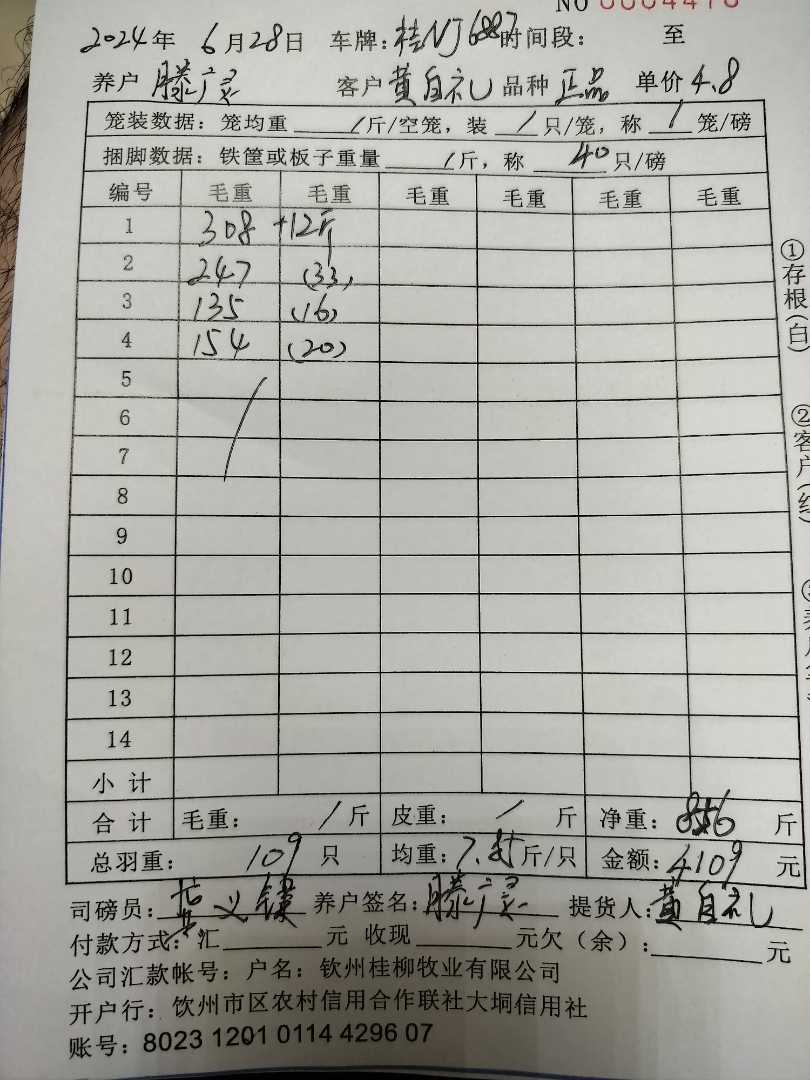 NO 0004478
2024年 6月28日 车牌:桂NJ6887 时间段: 至
养户 滕广灵 客户 黄自礼 品种 正品 单价 4.8
笼装数据: 笼均重 / 斤/空笼, 装 / 只/笼, 称 / 笼/磅
捆脚数据: 铁筐或板子重量 / 斤, 称 40 只/磅
编号 毛重 毛重 毛重 毛重 毛重 毛重
1 308 +12斤
2 247 (33)
3 135 (16)
4 154 (20)
5
6
7
8
9
10
11
12
13
14
小计
合计 毛重: / 斤 皮重: / 斤 净重: 856 斤
总羽重: 109 只 均重: 7.85 斤/只 金额: 4109 元
司磅员: 义 养户签名: 滕广灵 提货人: 黄自礼
付款方式: 汇 元 收现 元 欠(余): 元
公司汇款帐号: 户名: 钦州桂柳牧业有限公司
开户行: 钦州市区农村信用合作联社大垌信用社
账号: 8023 1201 0114 4296 07
①存根(白)
②客户(红)